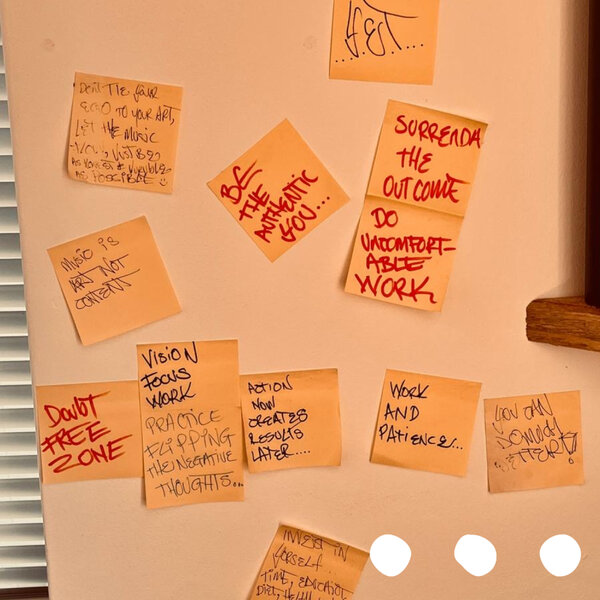 ...F.E.T....
DON'T TIE YOUR
EGO TO YOUR ART,
LET THE MUSIC
FLOW, JUST BE
AS HONEST & 
AS POSSIBLE
BE
THE
AUTHENTIC
YOU...
SURRENDA
THE
OUTCOME
DO
UNCOMFORT-
ABLE
WORK
MUSIC IS
ART NOT
CONTENT
DOUBT
FREE
ZONE
VISION
FOCUS
WORK
PRACTICE
FLIPPING
THE NEGATIVE
THOUGHTS...
ACTION
NOW
CREATES
RESULTS
LATER....
WORK
AND
PATIENCE...
YOU CAN
BETTER!
INVEST IN
YOURSELF
TIME, EDUCATION
DIET, HEALTH